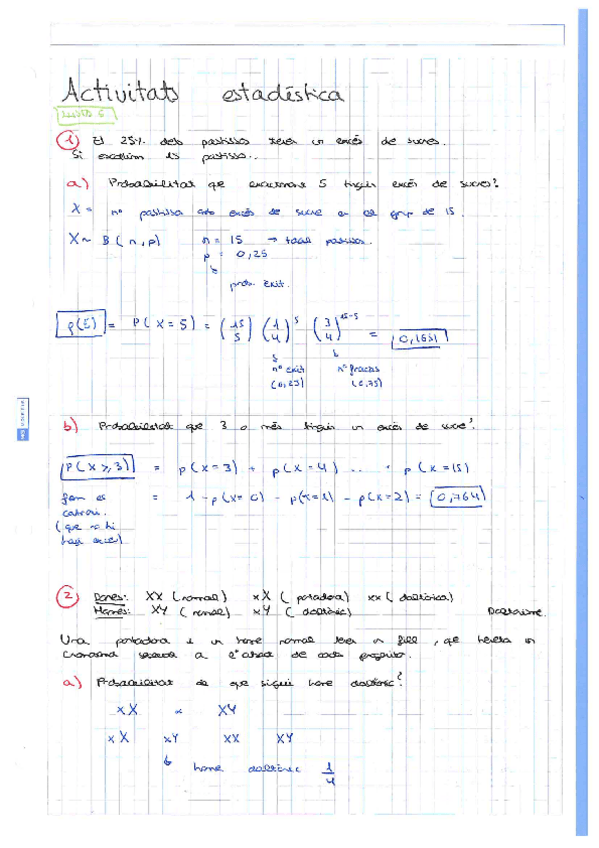 Activitats estadística
① El 25% dels pastissos tenen un excés de sucres.
Si escollim 15 pastissos..
a) Probabilitat que exactament 5 tinguin excés de sucres?
X = nº pastissos amb excés de sucre en el grup de 15.
X ~ B (n, p) n = 15 → total pastissos.
p = 0,25
prob. èxit.
p(5) = P(X = 5) = (15 5) (1/4)^5 (3/4)^15-5 = 0,1651
nº èxit nº fracàs
(0,25) (0,75)
b) Probabilitat que 3 o més tinguin un excés de sucre?
P(X ≥ 3) = p(x=3) + p(x=4) ... + p(x=15)
fem el = 1 - p(x=0) - p(x=1) - p(x=2) = 0,764
contrari.
(que no hi
hagi excés)
② Dones: XX (normal) xX (portadora) xx (daltònica)
Homes: XY (normal) xY (daltònic) Daltonisme.
Una portadora i un home normal tenen un fill, que hereta un
cromosoma sexual a l'atzar de cada progenitor.
a) Probabilitat de que sigui home daltònic?
xX x XY
xX xY XX XY
home daltònic 1/4